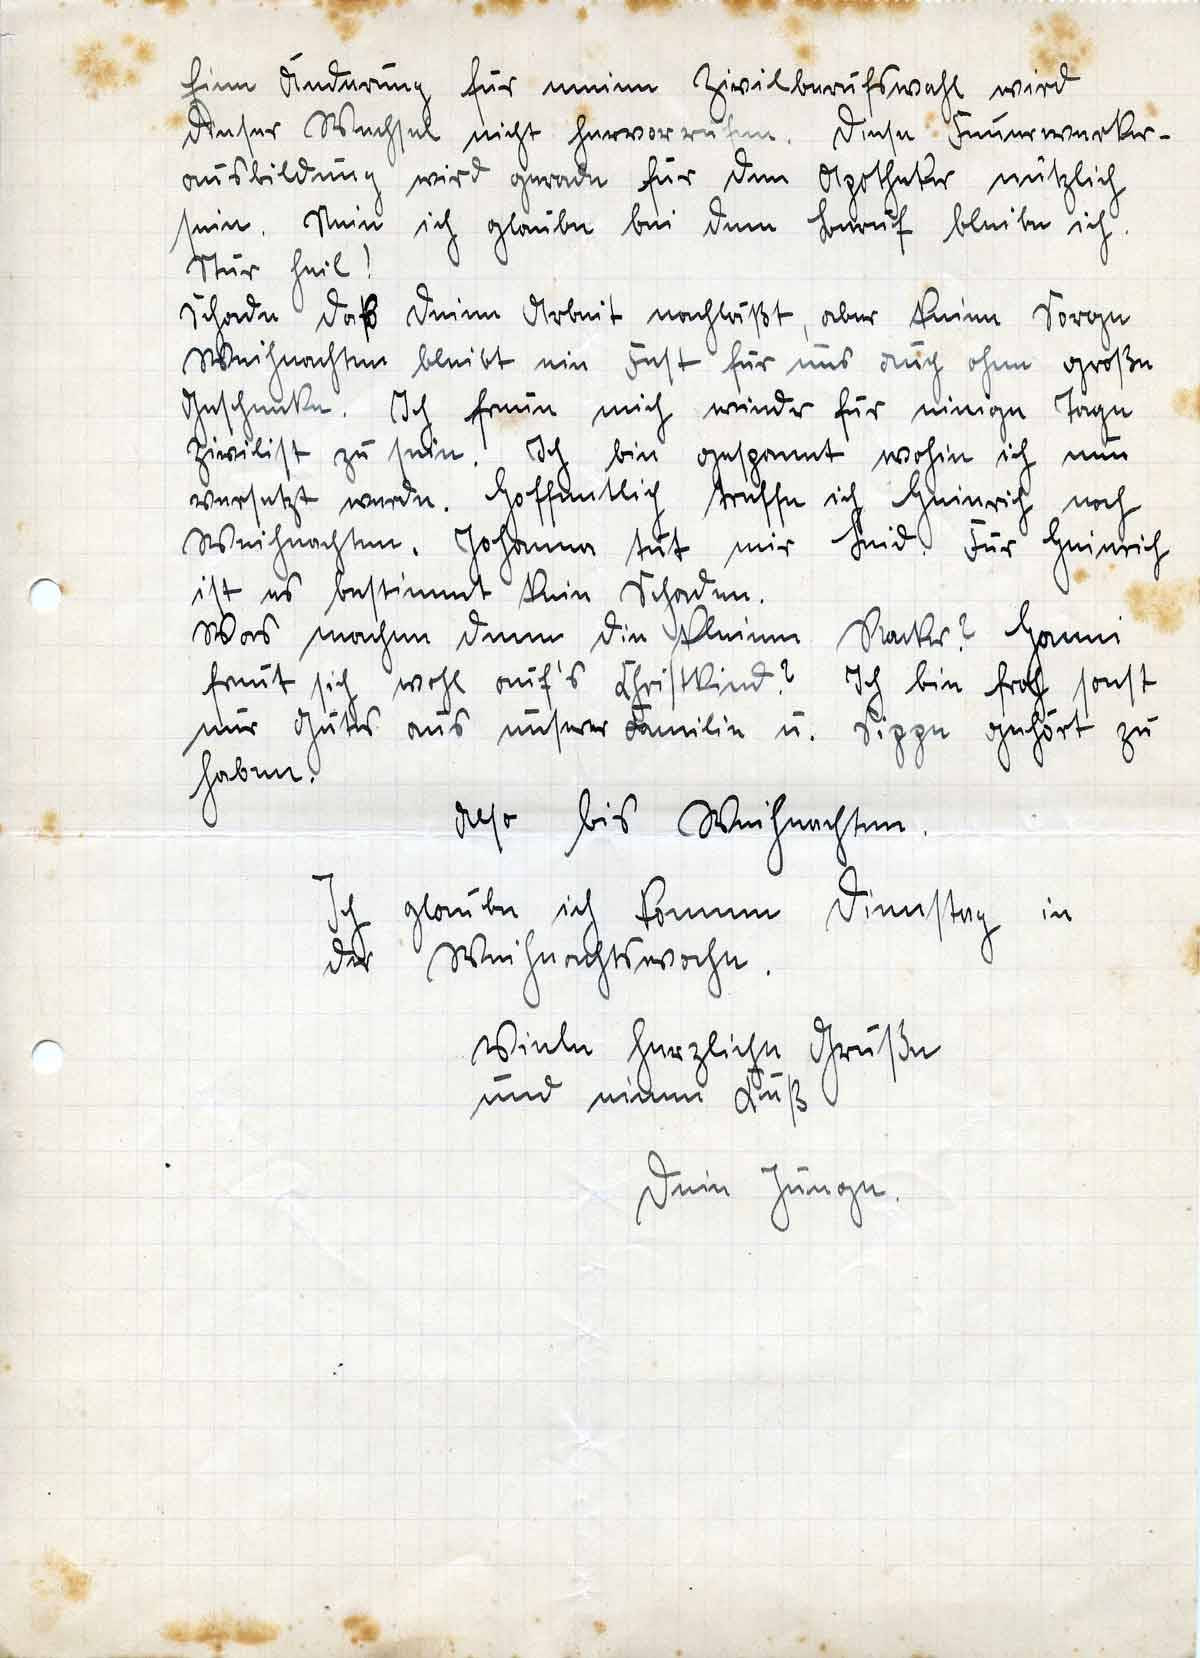 Eine Änderung für meine Zivilberufswahl wird
dieser Wechsel nicht hervorrufen. Diese Feuerwerker-
ausbildung wird gerade für den Apotheker nützlich
sein. Nein ich glaube bei dem Beruf bleibe ich.
Stur heil!
Schade daß Deine Arbeit nachläßt, aber keine Sorge
Weihnachten bleibt ein Fest für uns auch ohne große
Geschenke. Ich freue mich wieder für einige Tage
Zivilist zu sein. Ich bin gespannt wohin ich nun
versetzt werde. Hoffentlich treffe ich Heinrich noch
Weihnachten. Johanna tut mir leid. Für Heinrich
ist es bestimmt kein Schaden.
Was machen denn die kleinen Racker? Hanni
freut sich wohl auf's Christkind? Ich bin froh sonst
nur Gutes aus unserer Familie u. Sippe gehört zu
haben.
Also bis Weihnachten.
Ich glaube ich komme Dienstag in
der Weihnachtswoche.
Viele herzliche Grüße
und einen Kuß
Dein Junge.